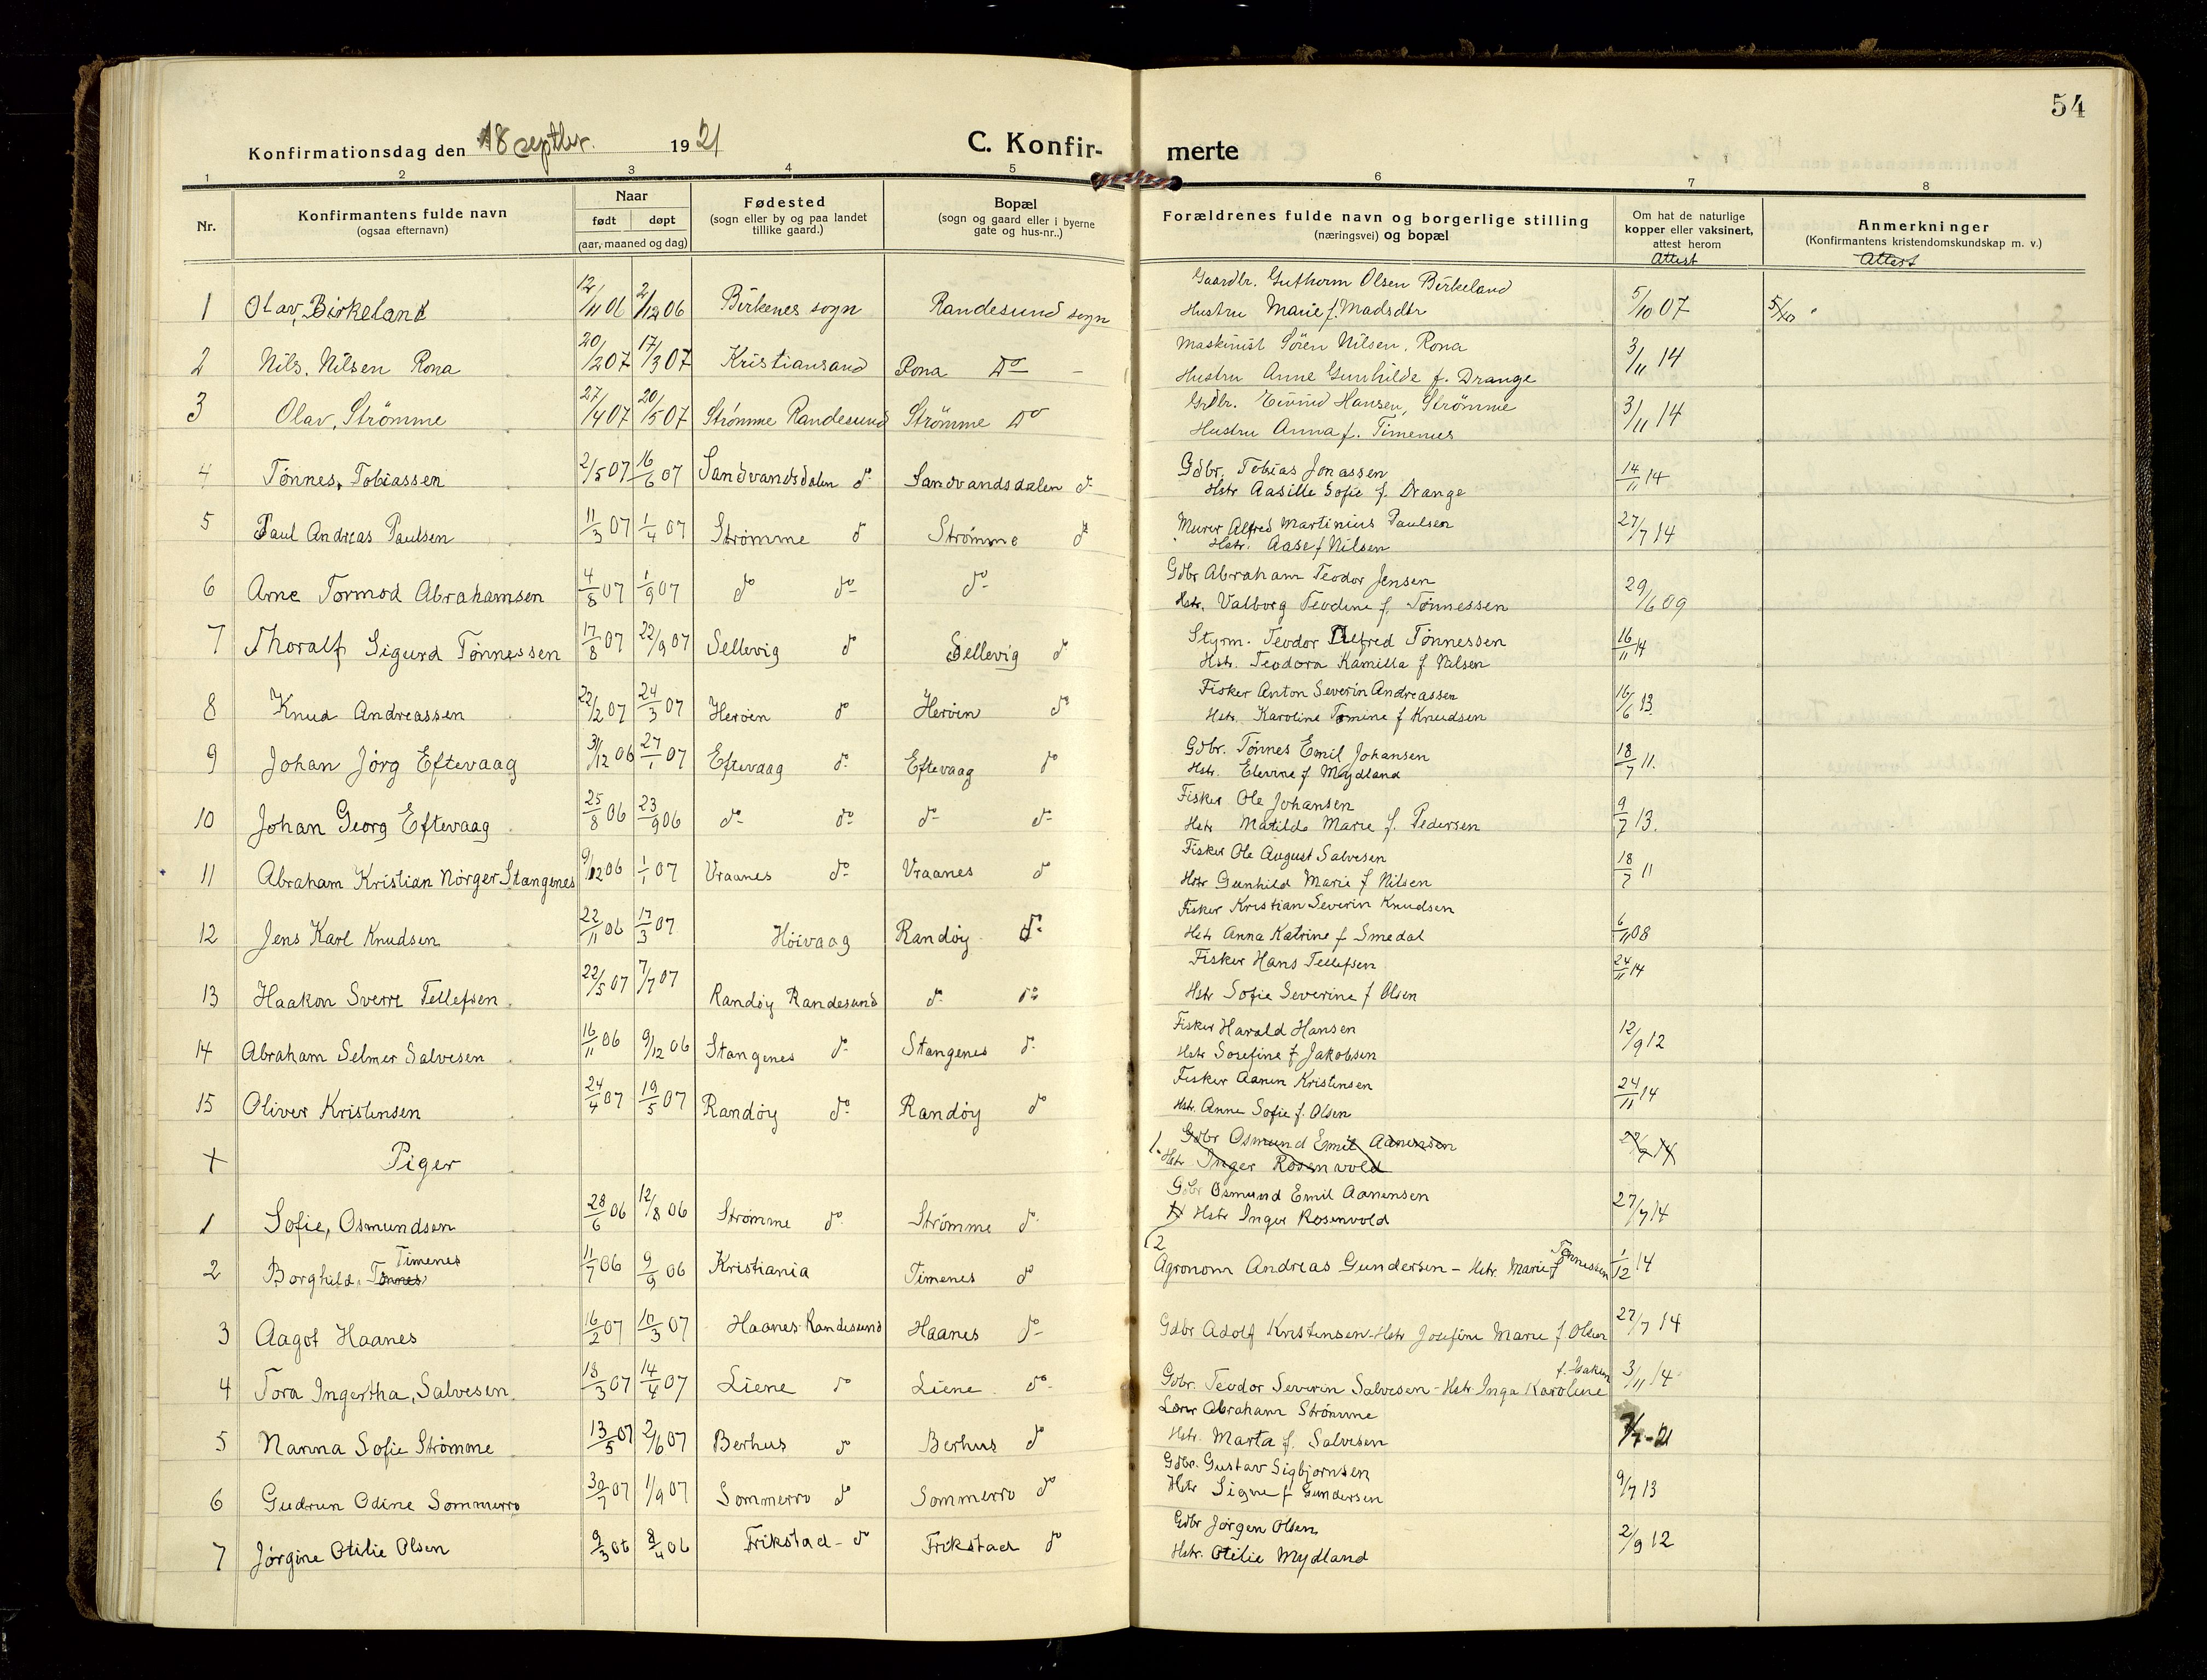 54
Konfirmationsdag den 18 septbr. 1921
C. Konfirmerte
1 2 3 4 5 6 7 8
Nr.
Konfirmantens fulde navn (ogsaa efternavn)
Naar født døpt (aar, maaned og dag)
Fødested (sogn eller by og paa landet tillike gaard.)
Bopæl (sogn og gaard eller i byerne gate og hus-nr..)
Forældrenes fulde navn og borgerlige stilling (næringsvei) og bopæl
Om hat de naturlige kopper eller vaksinert, attest herom Attest
Anmerkninger (Konfirmantens kristendomskundskap m. v.) Attest
1 Olav, Birkeland 12/11 06 2/12 06 Birkenes sogn Randesund sogn Gaardbr. Guthorm Olsen Birkeland 5/10 07
Hustru Marie f. Madsdtr
2 Nils. Nilsen Rona 20/2 07 17/3 07 Kristiansand Rona Do - Maskinist Sören Nilsen, Rona 3/11 14
Hustru Anne Gunhilde f. Drange
3 Olav, Strömme 27/4 07 20/5 07 Strömme Randesund Strömme Do Grdbr. Eivind Hansen, Strömme 3/11 14
Hustru Anna f. Timenes
4 Tönnes, Tobiassen 2/5 07 16/6 07 Sandvandsdalen do Sandvandsdalen do Gdbr. Tobias Jonassen 14/11 14
Hstr Aasille Sofie f. Drange
5 Paul Andreas Paulsen 11/3 07 1/4 07 Strømme do Strømme do Murer Alfred Martinius Paulsen 27/7 14
Hstr. Aase f Nilsen
6 Arne Tormod Abrahamsen 4/8 07 1/9 07 do do do Gdbr Abraham Teodor Jensen 29/6 09
Hstr. Valborg Teodine f. Tønnessen
7 Thoralf Sigurd Tønnessen 17/8 07 22/9 07 Sellevig do Sellevig do Styrm. Teodor Alfred Tønnessen 16/11 14
Hstr. Teodora Kamilla f Nilsen
8 Knud Andreassen 22/2 07 24/3 07 Herøen do Herøen do Fisker Anton Severin Andreassen 16/6 13
Hstr. Karoline Tomine f Knudsen
9 Johan Jörg Eftevaag 31/12 06 27/1 07 Eftevaag do Eftevaag do Gdbr. Tønnes Emil Johansen 18/7 11.
Hstr. Elevine f Mydland
10 Johan Georg Eftevaag 25/8 06 23/9 06 do do do do Fisker Ole Johansen 9/7 13.
Hstr Matilde Marie f. Pedersen
11 Abraham Kristian Nörger Stangenes 9/12 06 1/1 07 Vraanes do Vraanes do Fisker Ole August Salvesen 18/7 11
Hstr Gunhild Marie f Nilsen
12 Jens Karl Knudsen 22/11 06 17/3 07 Höivaag Randöy do Fisker Kristian Severin Knudsen 6/11 08
Hstr Anna Katrine f Smedal
13 Haakon Sverre Tellefsen 22/5 07 7/7 07 Randöy Randesund do do Fisker Hans Tellefsen 24/11 14
Hstr Sofie Severine f Olsen
14 Abraham Selmer Salvesen 16/11 06 9/12 06 Stangenes do Stangenes do Fisker Harald Hansen 12/9 12
Hstr Josefine f Jakobsen
15 Oliver Kristensen 24/4 07 19/5 07 Randöy do Randöy do Fisker Aanen Kristensen 24/11 14
Hstr. Anne Sofie f. Olsen
+ Piger 1. Gdbr Osmund Emil Aanensen
Hstr Inger Rosenvold
1 Sofie, Osmundsen 28/6 06 12/8 06 Strømme do Strømme do Gdbr Osmund Emil Aanensen 27/7 14
Hstr Inger Rosenvold
2 Borghild. Tønnes Timenes 11/7 06 9/9 06 Kristiania Timenes do 2 Agronom Andreas Gundersen - Hstr. Marie f Tønnessen 1/12 14
3 Aagot Haanes 16/2 07 10/3 07 Haanes Randesund Haanes do Gdbr Adolf Kristensen - Hstr Josefine Marie f Olsen 27/7 14
4 Tora Ingertha, Salvesen 18/3 07 14/4 07 Liene do Liene do Gdbr. Teodor Severin Salvesen - Hstr Inga Karoline 3/11 14
5 Nanna Sofie Strømme 13/5 07 2/6 07 Berhus do Berhus do Abraham Strømme
Hstr. Marta f. Salvesen
6 Gudrun Odine Sommerro 30/7 07 1/9 07 Sommerro do Sommerro do Gdbr. Gustav Sigbjørnsen 9/7 13
Hstr Signe f Gundersen
7 Jörgine Otilie Olsen 9/3 06 8/4 06 Frikstad - do Frikstad do Gdbr Jörgen Olsen 2/9 12
Hstr. Otilie Mydland